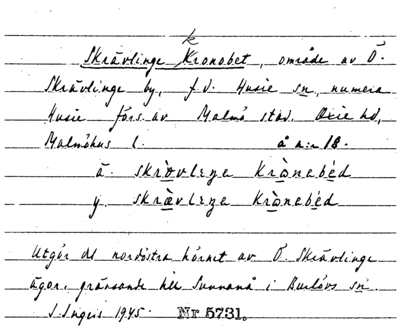 k
Skrävlinge Kronobet, område av Ö.
Skrävlinge by, f.d. Husie sn, numera
Husie förs. av Malmö stad. Oxie hd,
Malmöhus l. å a:r 18.
ä. skròvlıŋa Krònabéd
y. skrævlıŋa Krònabéd
Utgör del nordöstra hörnet av Ö. Skrävlinge
ägor, gränsande till Sunnanå i Burlövs sn.
S. Ingers 1945. Nr 5731.